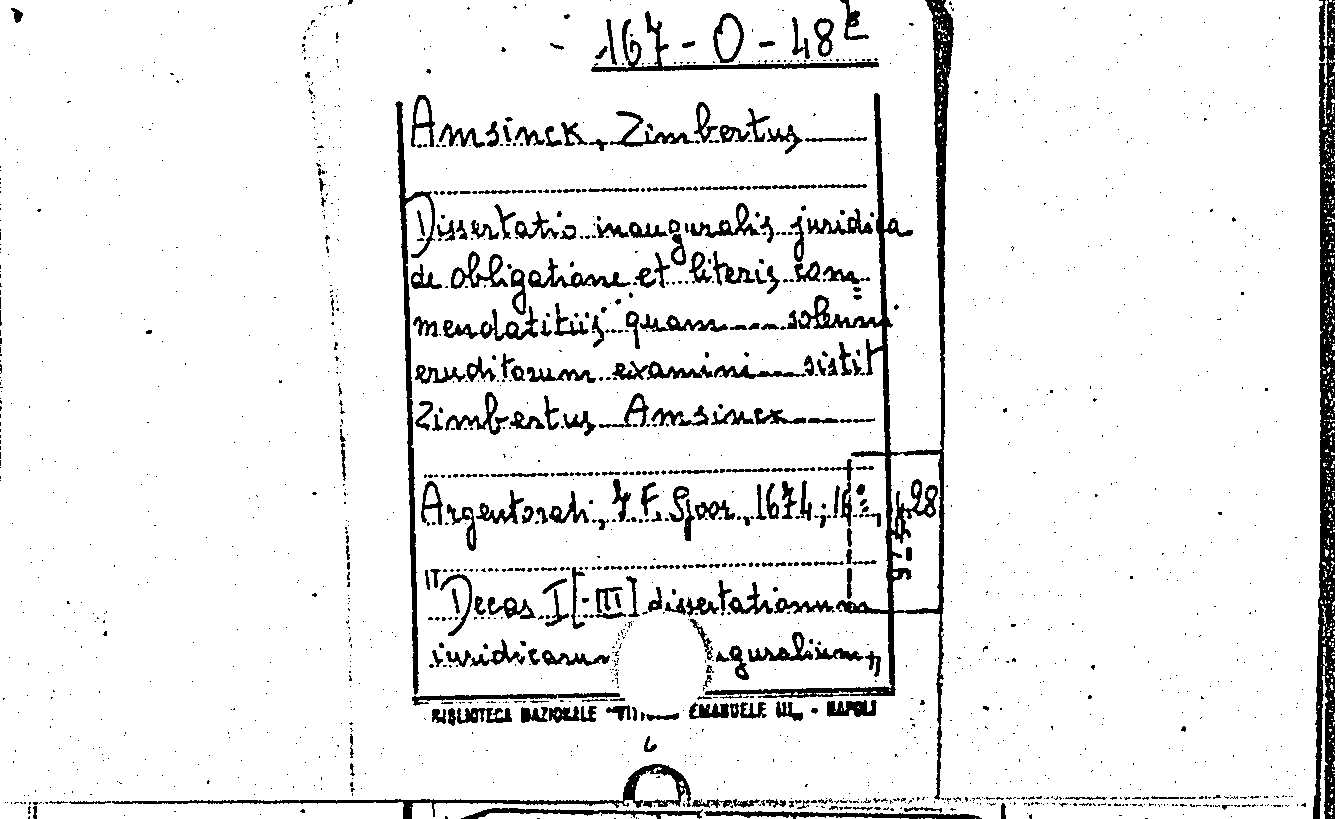 167-O-48
Amsinck, Zimbertus
Dissertatio inauguralis juridica
de obligatione et literis com=
mendatitiis quam --- solenni
eruditorum examini --- sistit
Zimbertus Amsinck ---
Argentorati, J. F. Spoor, 1674; 16°, 28
"Decas I [-III] dissertationum
iuridicarum guralium"
BIBLIOTECA NAZIONALE "EMANUELE III" - NAPOLI
6